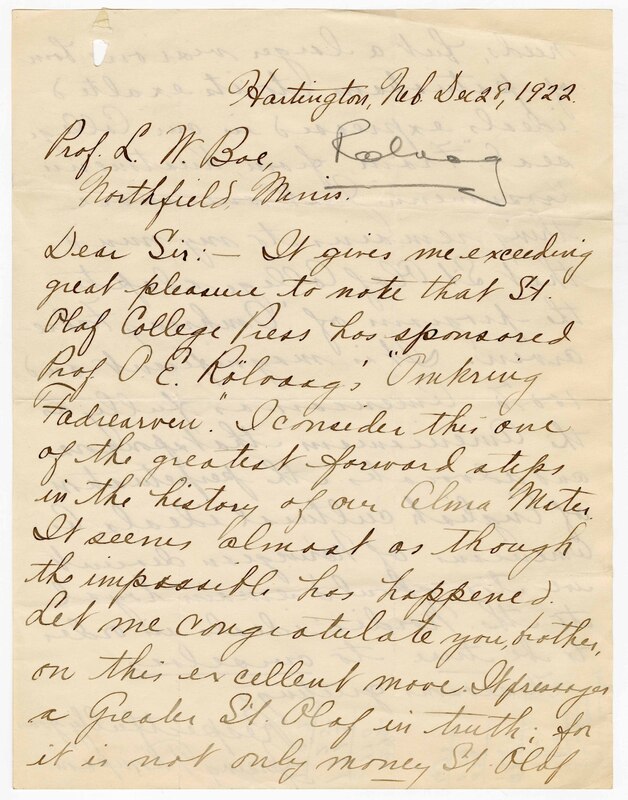 Hartington, Neb. Dec 28, 1922.
Prof. L. W. Boe,
Rolvaag
Northfield, Minn.
Dear Sir:— It gives me exceeding
great pleasure to note that St.
Olaf College Press has sponsored
Prof. O. E. Rölvaag's "Omkring
Fadrearven." I consider this one
of the greatest forward steps
in the history of our Alma Mater.
It seems almost as though
the impossible has happened.
Let me congratulate you, brother,
on this excellent move. It presages
a Greater St. Olaf in truth; for
it is not only money St. Olaf